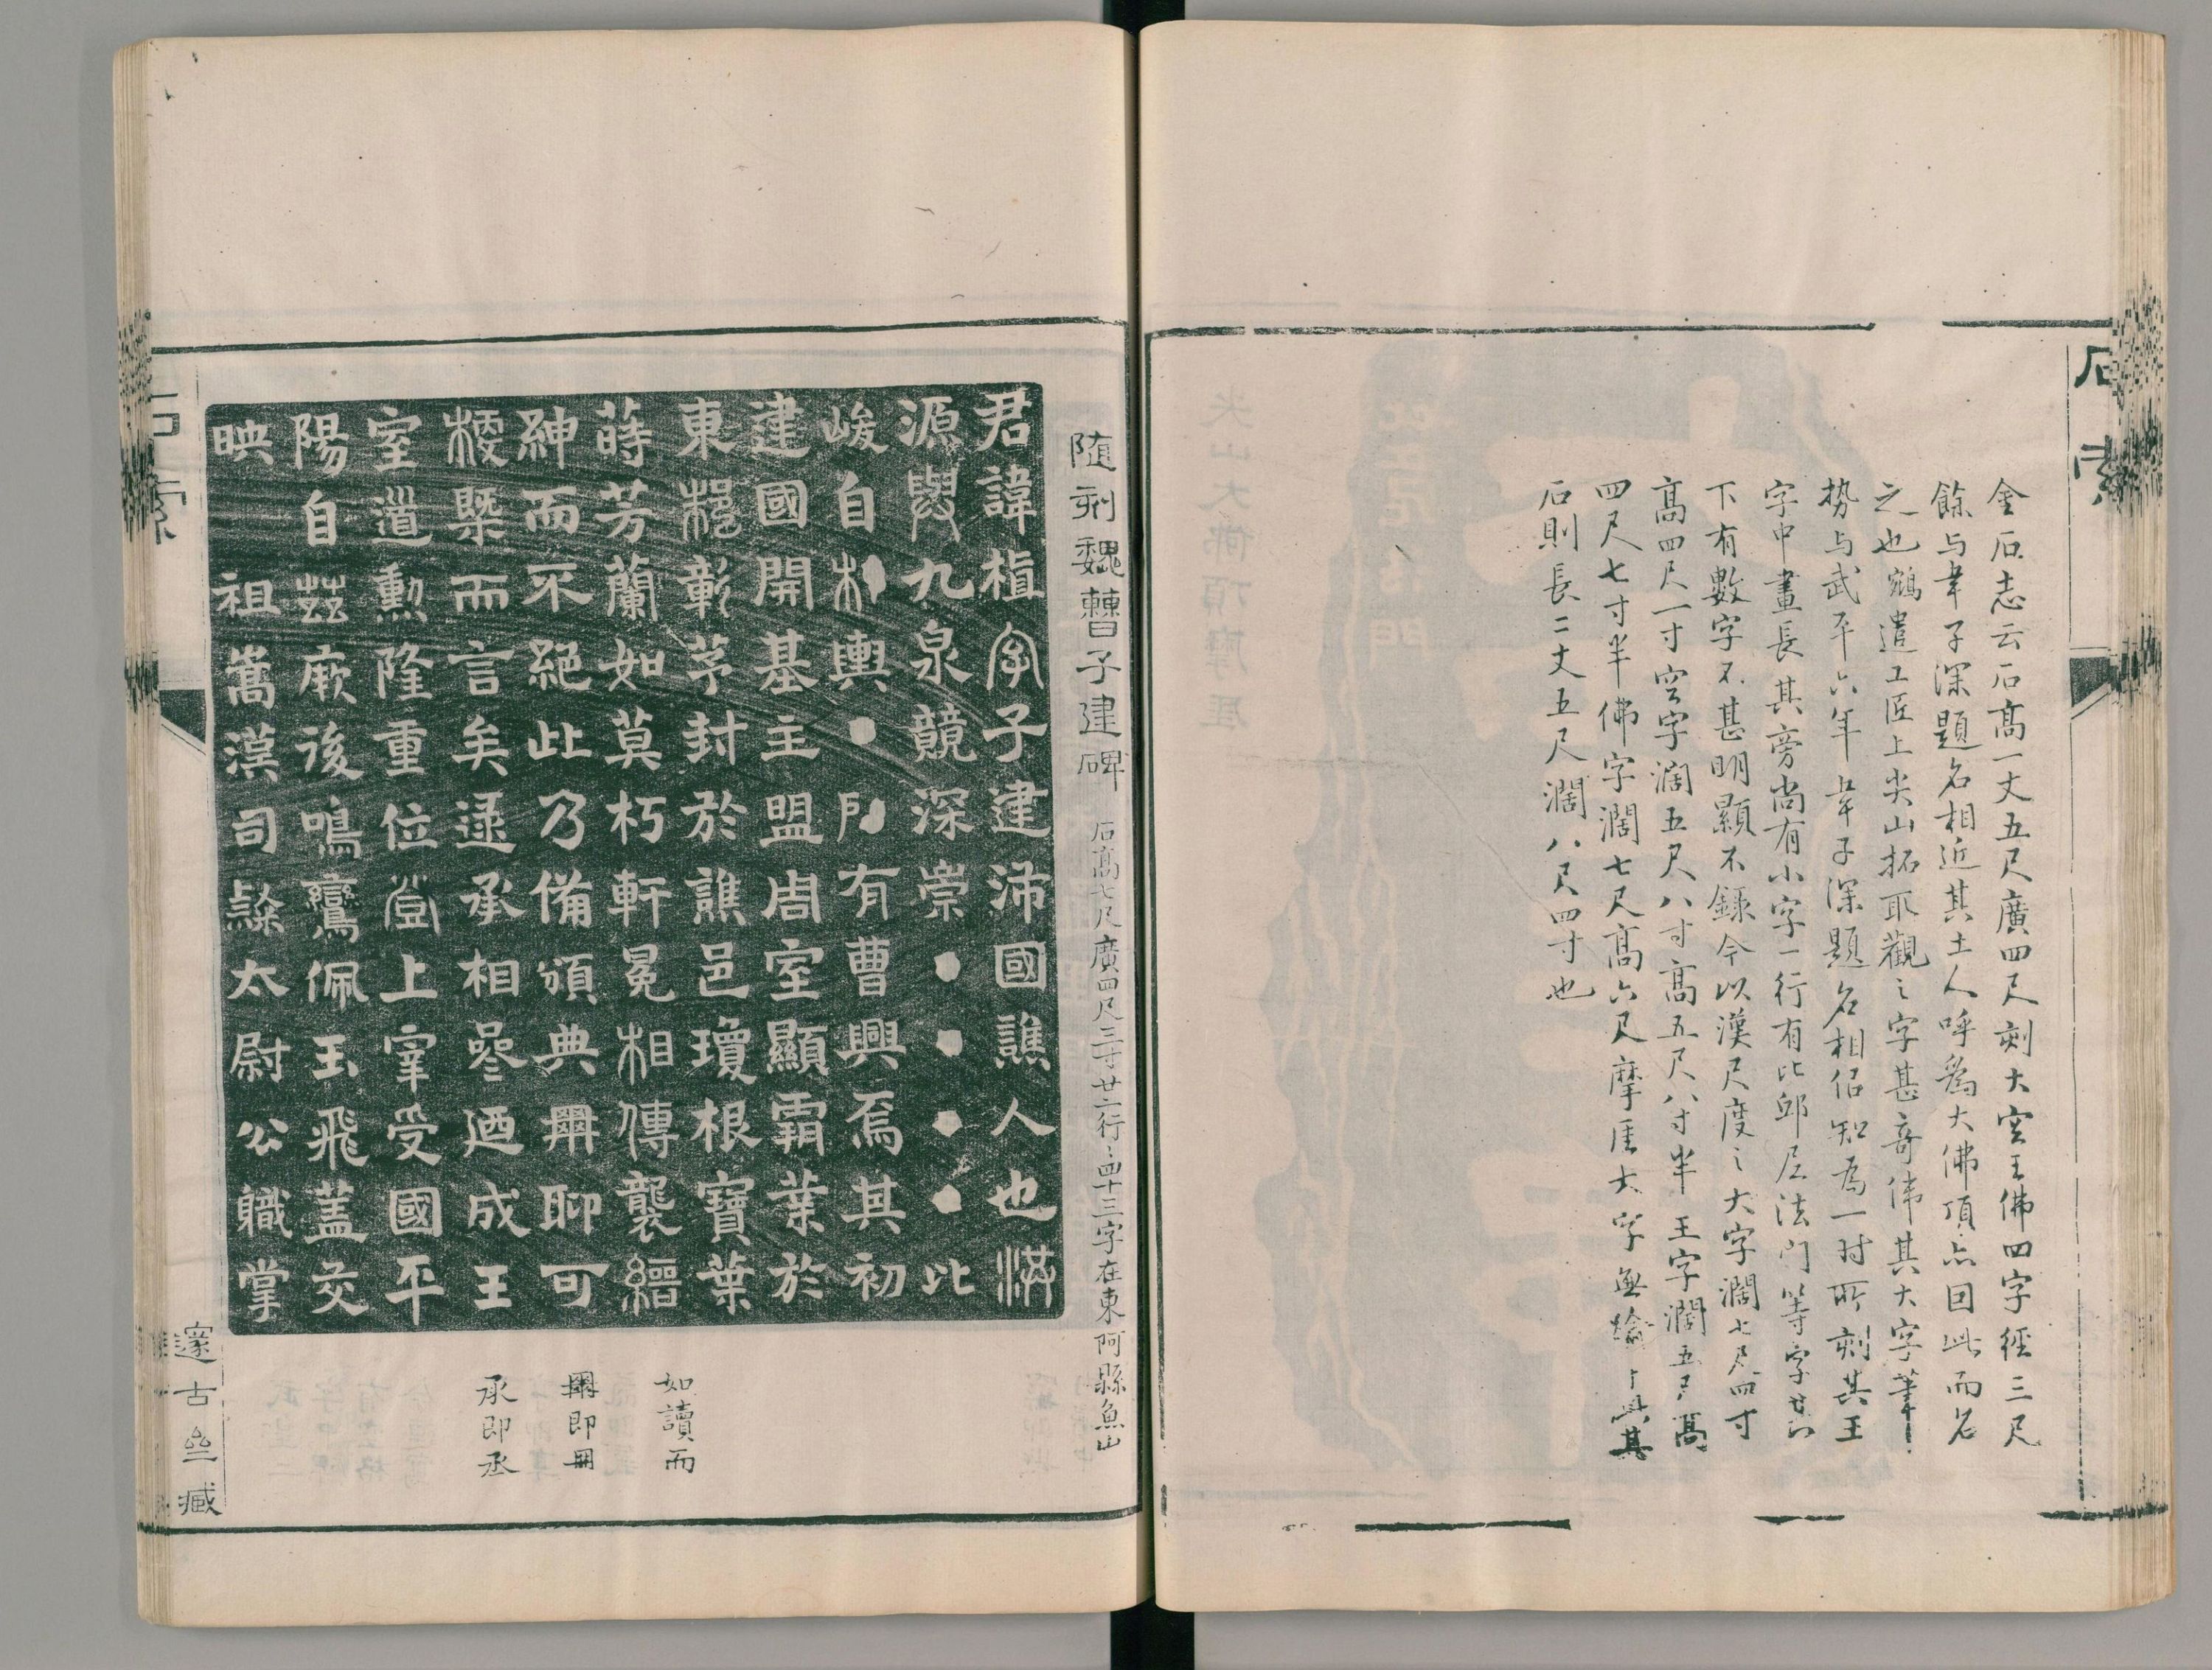 石索
金石志云石高一丈五尺廣四尺刻大空王佛四字經三尺
餘与韋子深題名相近其土人呼為大佛頂点因此而名
之也鵷遣工匠上尖山拓取觀之字甚奇偉其大字筆
勢与武平六年韋子深題名相侣知為一时所刻其王
字中畫長其旁尚有小字一行有比邱尼法门等字其
下有數字不甚明顯不錄今以漢尺度之大字濶七尺四寸
高四尺一寸空字濶五尺八寸高五尺八寸半王字濶五尺高
四尺七寸半佛字濶七尺高六尺摩厓大字無其
石則長二丈五尺濶八尺四寸也
随刻魏曹子建碑 石高七尺廣四尺三寸廿二行〻四十三字在東阿縣魚山
君諱植字子建沛國譙人也洪
源與九泉競深崇●●●●比
峻自●輿●●有曹興焉其初
建國開基主盟周室顯霸業於
東彰茅封於譙邑瓊根寶葉
蒔芳蘭如莫朽軒冕相傳襲縉
紳而不絕此乃備頒典冊聊可
梗槩而言矣逮承相參迺成王
室道勲隆重位登上宰受國平
陽自茲厥後鳴鸞佩玉飛蓋交
映 祖嵩漢司隸太尉公職掌
如讀而
即冊
承即丞
石索
邃古亝臧